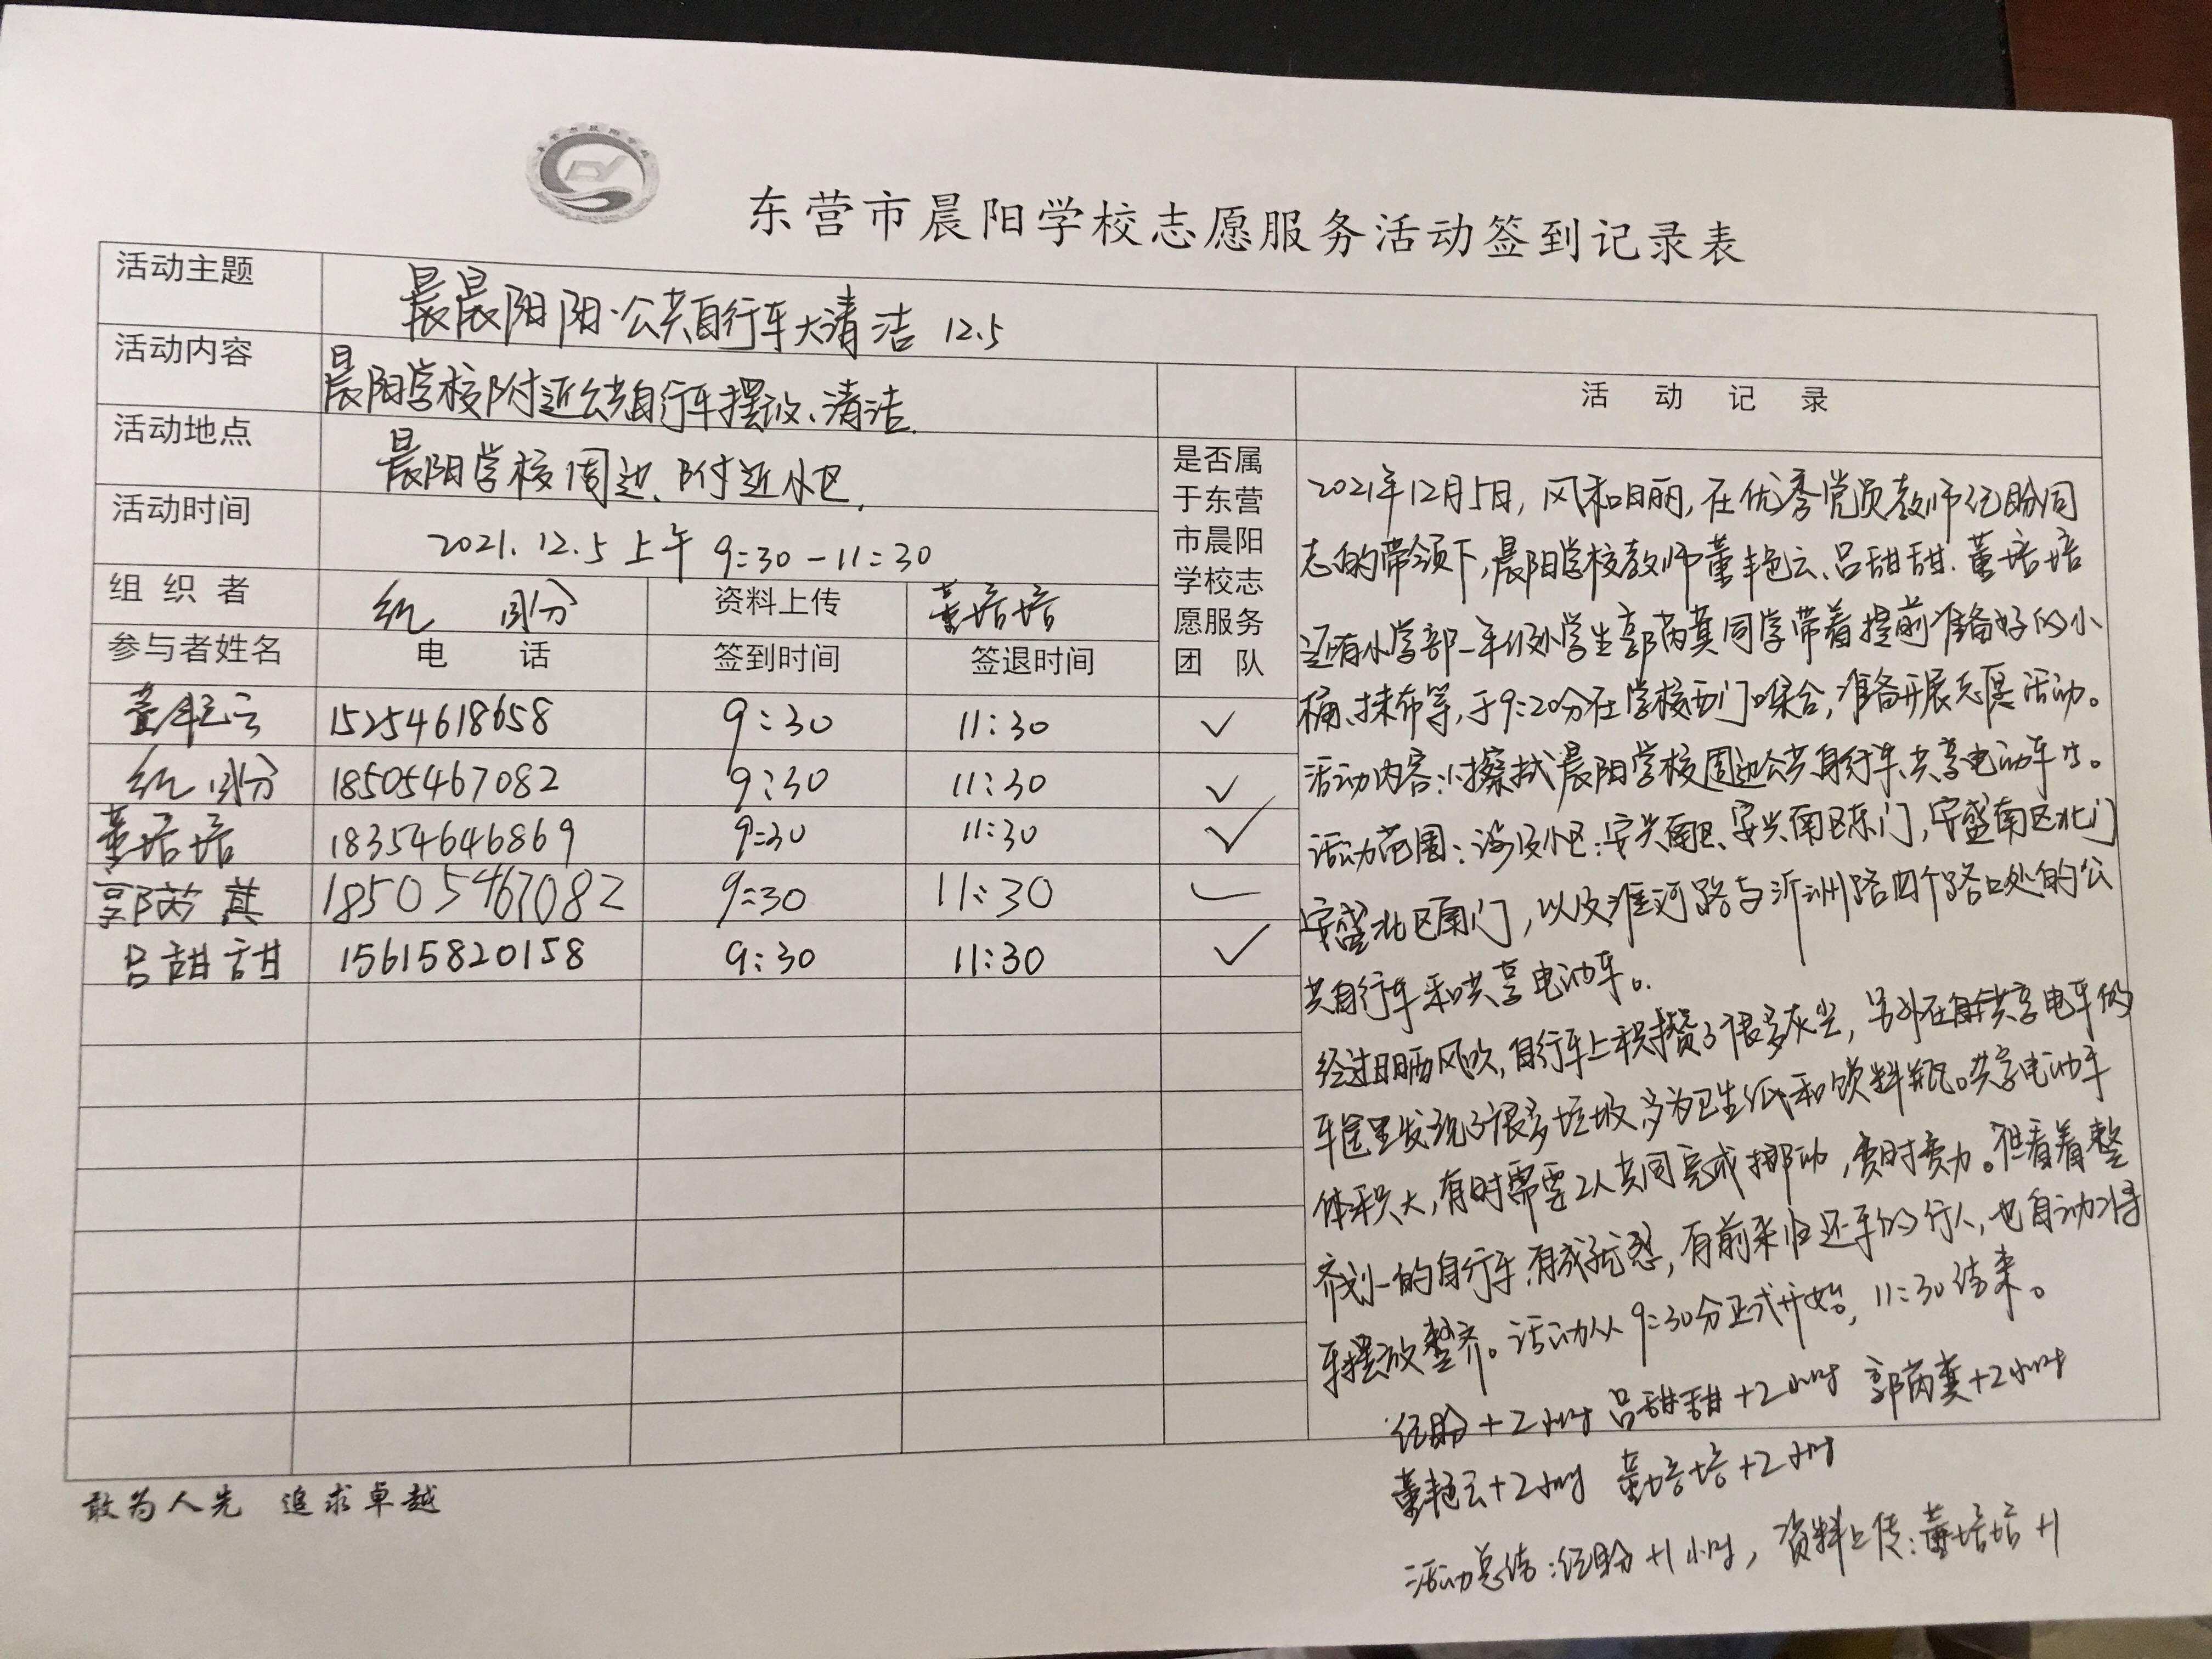 东营市晨阳学校志愿服务活动签到记录表
活动主题 晨晨阳阳·公共自行车大清洁 12.5
活动内容 晨阳学校附近公共自行车摆放、清洁.
活动地点 晨阳学校周边、附近小区.
活动时间 2021.12.5 上午 9:30-11:30
组织者 纪盼 资料上传 董培培
参与者姓名 电话 签到时间 签退时间
是否属
于东营
市晨阳
学校志
愿服务
团队
董艳云 15254618658 9:30 11:30 ✓
纪盼 18505467082 9:30 11:30 ✓
董培培 18354646869 9:30 11:30 ✓
郭芮萁 18505467082 9:30 11:30 ✓
吕甜甜 15615820158 9:30 11:30 ✓
活动记录
2021年12月5日,风和日丽,在优秀党员教师纪盼同
志的带领下,晨阳学校教师董艳云、吕甜甜、董培培
还有小学部一年级小学生郭芮萁同学带着提前准备好的小
桶、抹布等,于9:20分在学校西门口集合,准备开展志愿活动。
活动内容:擦拭晨阳学校周边公共自行车、共享电动车。
活动范围:涉及小区:安兴南区、安兴南区东门,安盛南区北门
安盛北区南门,以及淮河路与沂州路四个路口处的公
共自行车和共享电动车。
经过日晒风吹,自行车上积攒了很多灰尘,另外在共享电车的
车筐里发现了很多垃圾,多为卫生纸和饮料瓶。共享电动车
体积大,有时需要2人共同完成挪动,费时费力。但看着整
齐划一的自行车,有前来归还车的行人,也自动将
车摆放整齐。活动从9:30分正式开始,11:30结束。
纪盼+2小时 吕甜甜+2小时 郭芮萁+2小时
董艳云+2小时 董培培+2小时
活动总结:纪盼+1小时,资料上传:董培培+1
敢为人先 追求卓越